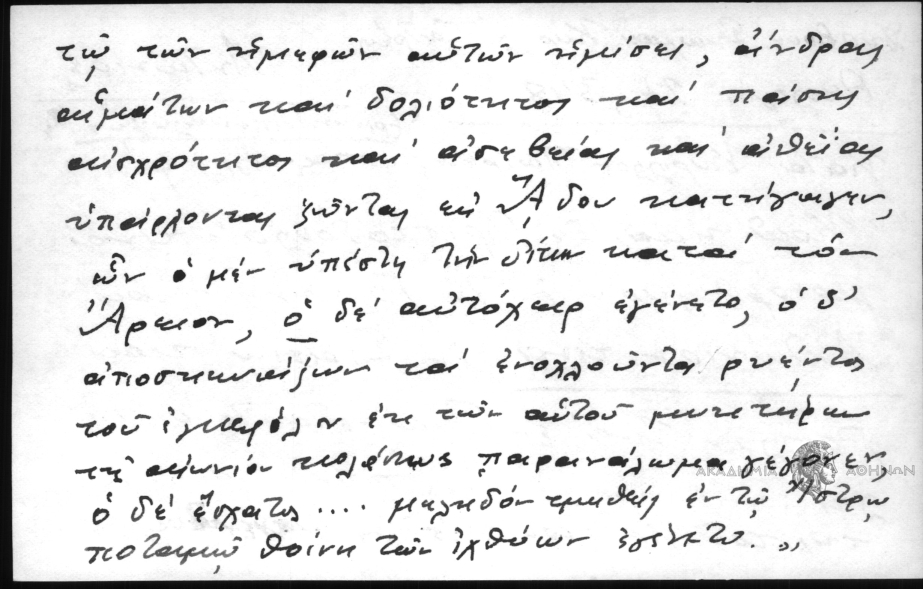 τῷ τῶν ἡμερῶν αὐτῶν ἡμίσει, ἄνδρας
αἱμάτων καὶ δολιότητος καὶ πάσης
αἰσχρότητος καὶ ἀσεβείας καὶ ἀθεΐας
ὑπάρχοντας ζῶντας εἰς Ἅδου κατήγαγεν,
ὧν ὁ μὲν ὑπέστη τὴν δίκην κατὰ τὸν
Ἄρειον, ὁ δὲ αὐτόχειρ ἐγένετο, ὁ δ'
ἀποσκυβαλίζων τὰ ἐνοχλοῦντα ῥυέντος
τοῦ ἐγκεφάλου ἐκ τῶν αὐτοῦ μυκτήρων
τῆς αἰωνίου κολάσεως παρανάλωμα γέγονεν,
ὁ δὲ ἔσχατος .... μεληδὸν τμηθεὶς ἐν τῷ Ἴστρῳ
ποταμῷ θοίνη τῶν ἰχθύων ἐγένετο.»
ΑΚΑΔΗΜΙΑ ΑΘΗΝΩΝ